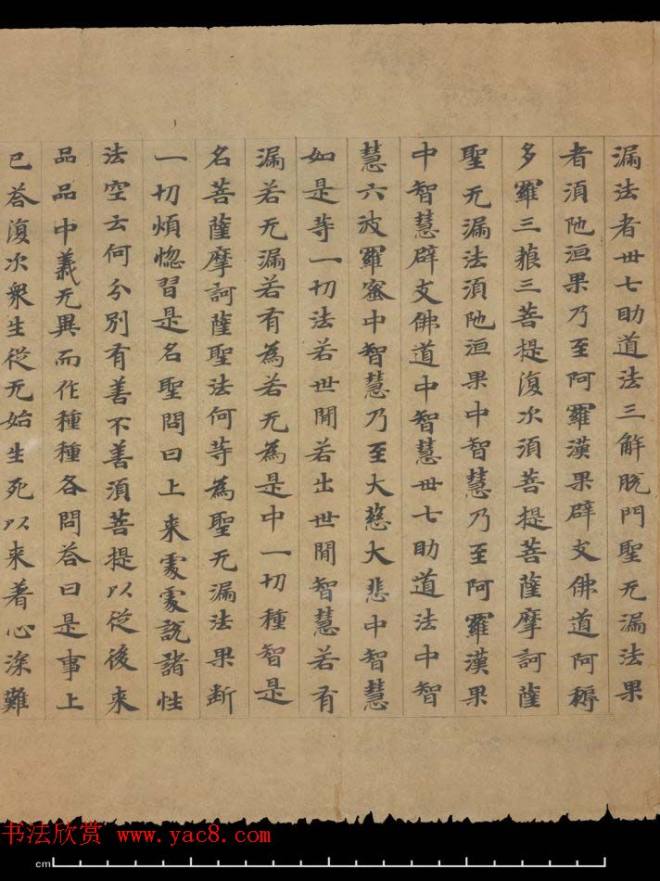 漏法者卅七助道法三解脫門聖无漏法果
者湏陁洹果乃至阿羅漢果辟支佛道阿耨
多羅三藐三菩提復次湏菩提菩薩摩訶薩
聖无漏法湏陁洹果中智慧乃至阿羅漢果
中智慧辟支佛道中智慧卅七助道法中智
慧六波羅蜜中智慧乃至大慈大悲中智慧
如是等一切法若世閒若出世閒智慧若有
漏若无漏若有為若无為是中一切種智是
名菩薩摩訶薩聖法何等為聖无漏法果斷
一切煩惚習是名聖問曰上来處處說諸性
法空云何分別有善不善湏菩提以從後来
品品中義无異而作種種各問荅曰是事上
已荅復次衆生從无始生死以来著心深難
书法欣赏 www.yac8.com
cm